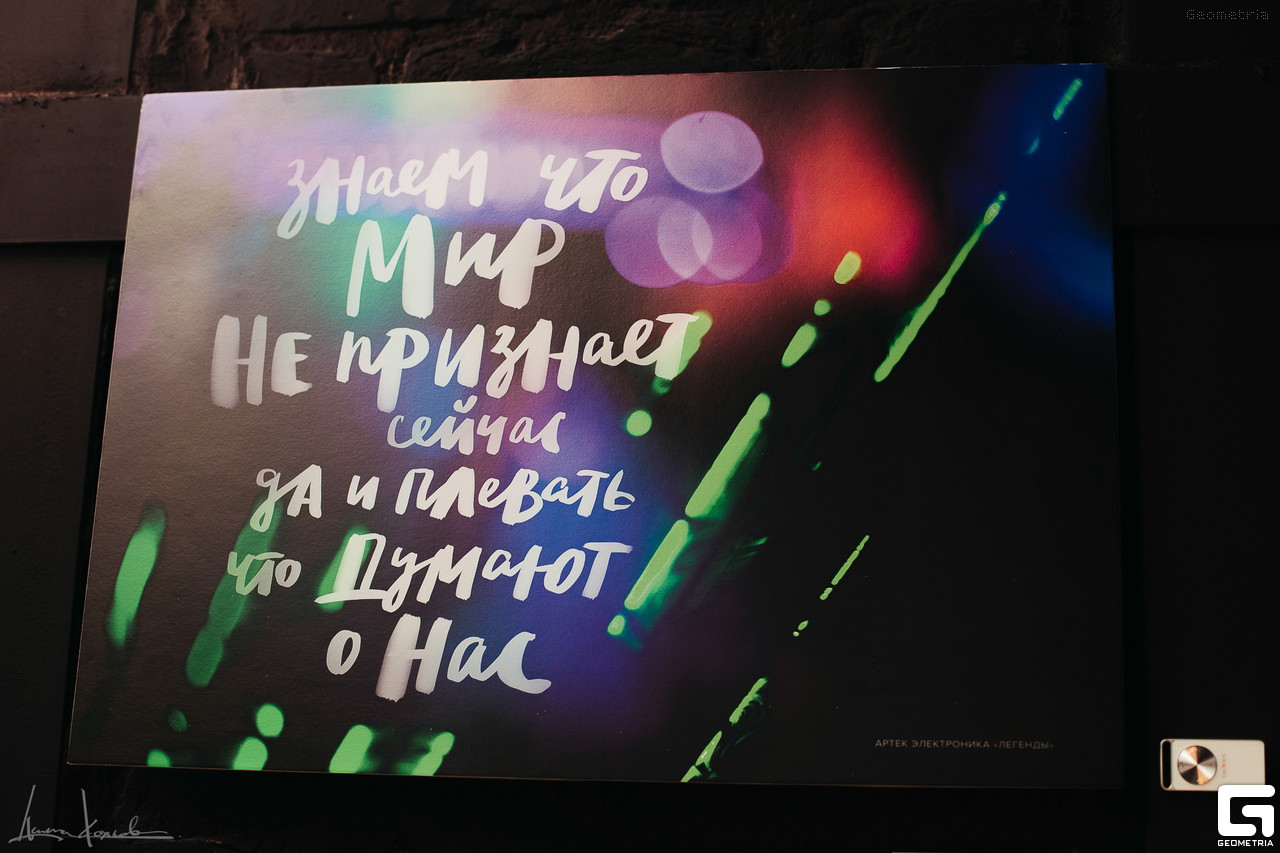 Geometria
знаем что
Мир
НЕ признает
сейчас
да и плевать
что Думают
о Нас
АРТЕК ЭЛЕКТРОНИКА «ЛЕГЕНДЫ»
GEOMETRIA